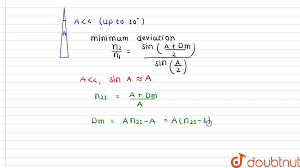 A<< (up to 10°)
minimum deviation
n2/n1 = sin((A + Dm)/2) / sin(A/2)
A<<, sin A ≈ A
n21 = (A + Dm)/A
Dm = An21 - A = A(n21-1)
doubtnut